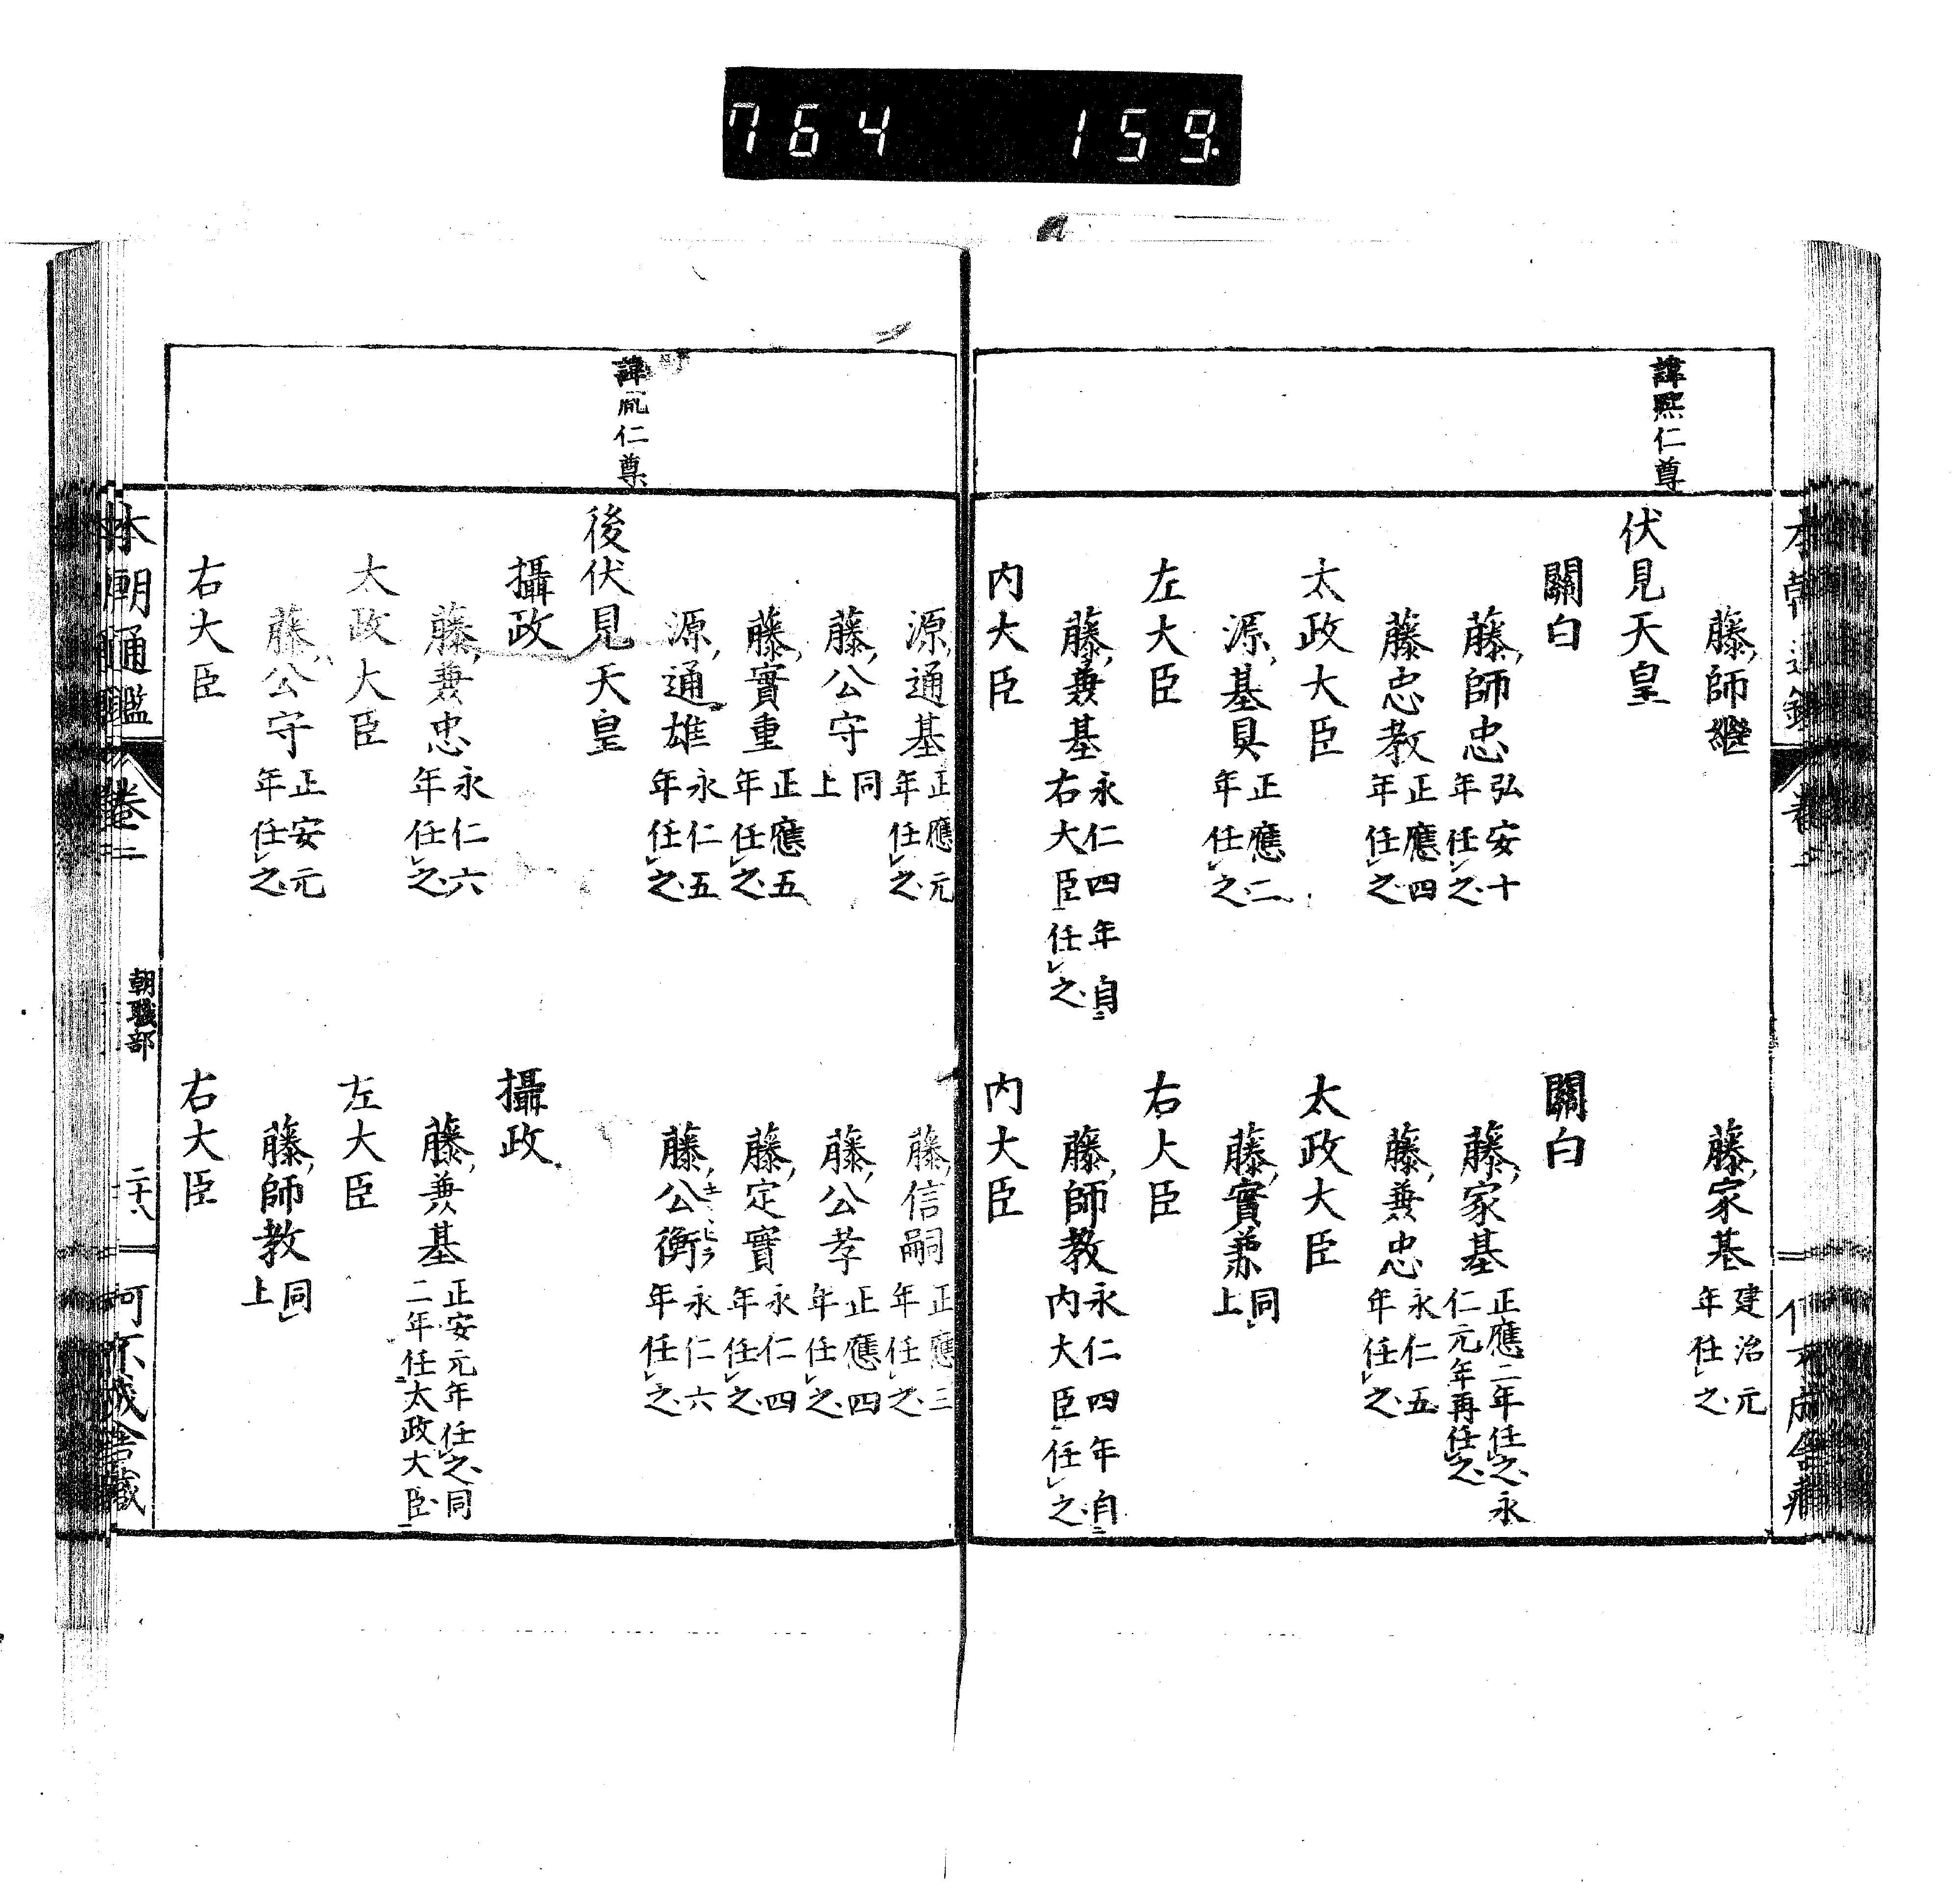 764 159
諱熈仁尊
藤師継
藤家基 建治元年任之
伏見天皇
關白
關白
藤師忠 弘安十年任之
藤家基 正應二年任之永仁元年再任之
藤忠教 正應四年任之
藤兼忠 永仁五年任之
太政大臣
太政大臣
源基具 正應二年任之
藤實兼 同上
左大臣
右大臣
藤兼基 永仁四年自右大臣任之
藤師教 永仁四年自内大臣任之
内大臣
内大臣
諱胤仁尊
源通基 正應元年任之
藤信嗣 正應三年任之
藤公守 同上
藤公孝 正應四年任之
藤實重 正應五年任之
藤定實 永仁四年任之
源通雄 永仁五年任之
藤公衡 キンヒラ 永仁六年任之
後伏見天皇
攝政
攝政
藤兼忠 永仁六年任之
藤兼基 正安元年任之同二年任太政大臣
太政大臣
左大臣
藤公守 正安元年任之
藤師教 同上
右大臣
右大臣
本朝通鑑 卷二 朝職部 二十八